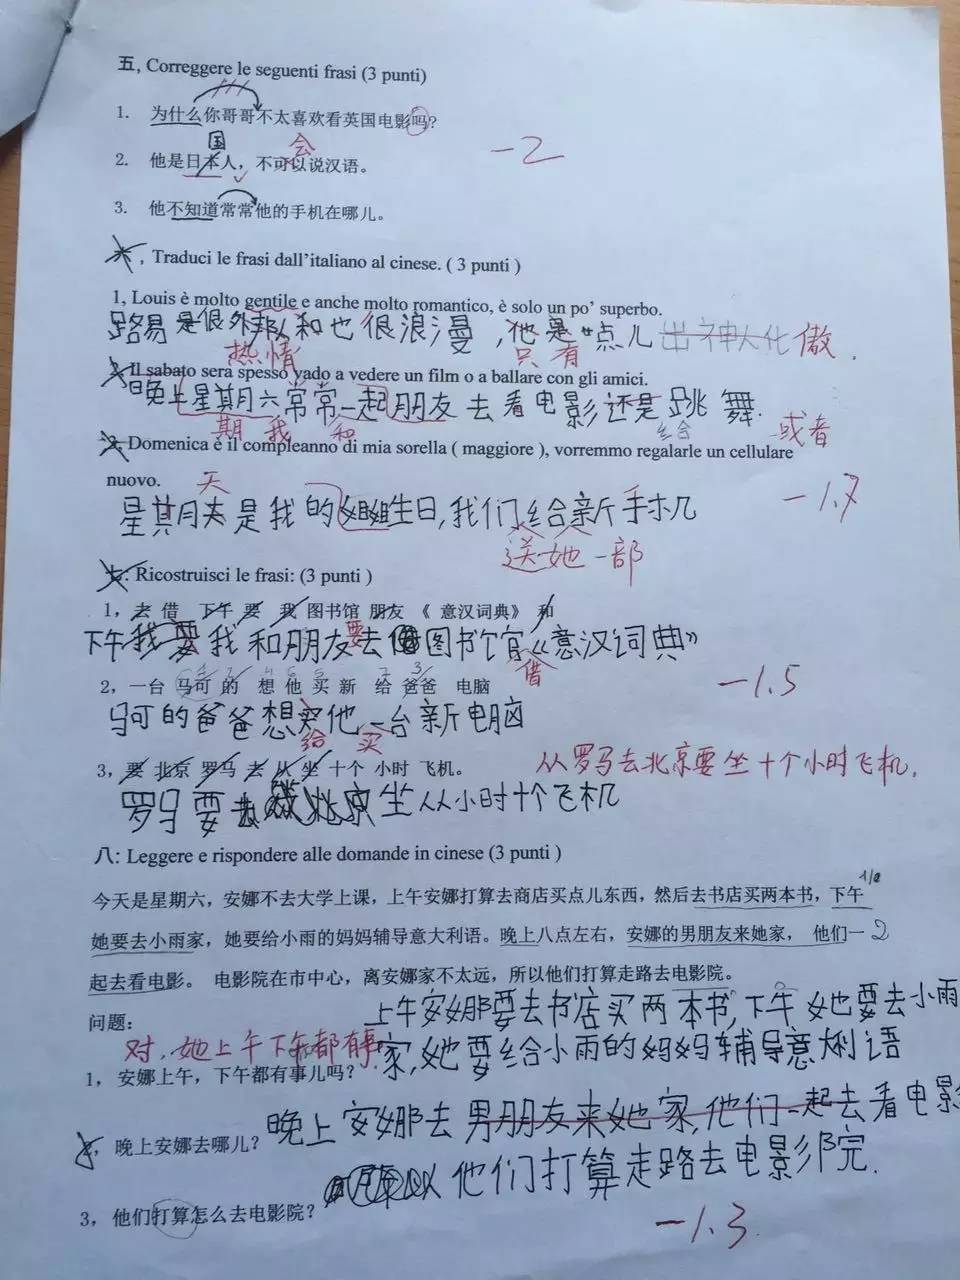 五, Correggere le seguenti frasi (3 punti)
1. 为什么你哥哥不太喜欢看英国电影吗?
国 会
-2
2. 他是日本人，不可以说汉语。
3. 他不知道常常他的手机在哪儿。
, Traduci le frasi dall'italiano al cinese. ( 3 punti )
1, Louis è molto gentile e anche molto romantico, è solo un po' superbo.
路易是很外 和也很浪漫，他是一点儿出神人化 傲.
热情 只有
Il sabato sera spesso vado a vedere un film o a ballare con gli amici.
晚上星期六常常一起朋友去看电影还是跳舞.
期 我 和 给 或者
2, Domenica è il compleanno di mia sorella ( maggiore ), vorremmo regalarle un cellulare
nuovo.
天 -1.7
星其月天是我的姐姐生日,我们给新手机
送她一部
七: Ricostruisci le frasi: (3 punti )
1, 去 借 下午 要 我 图书馆 朋友 《 意汉词典》 和
下午我要我和朋友要去借图书馆《意汉词典》
借
-1.5
2, 一台 马可 的 想 他 买 新 给 爸爸 电脑
马可的爸爸想买他一台新电脑
给 买
3, 要 北京 罗马 去 从 坐 十个 小时 飞机。
从罗马去北京要坐十个小时飞机.
罗马要去 北京坐从小时十个飞机
八: Leggere e rispondere alle domande in cinese (3 punti )
今天是星期六，安娜不去大学上课，上午安娜打算去商店买点儿东西，然后去书店买两本书，下午
她要去小雨家，她要给小雨的妈妈辅导意大利语。晚上八点左右，安娜的男朋友来她家，他们一
起去看电影。 电影院在市中心，离安娜家不太远，所以他们打算走路去电影院。
问题:
上午安娜要去书店买两本书,下午她要去小雨
对,她上午下午都有事.
家,她要给小雨的妈妈辅导意大利语
1, 安娜上午，下午都有事儿吗?
晚上安娜去男朋友来她家,他们一起去看电影
2, 晚上安娜去哪儿?
他们打算走路去电影院.
3, 他们打算怎么去电影院?
-1.3